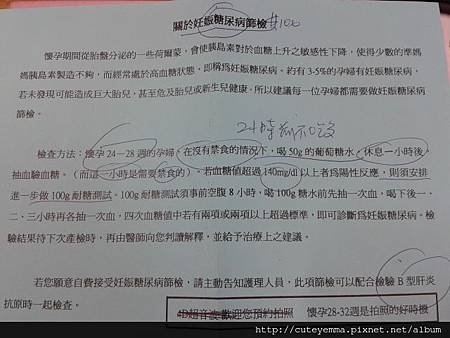 關於妊娠糖尿病篩檢 $100
懷孕期間從胎盤分泌的一些荷爾蒙，會使胰島素對於血糖上升之敏感性下降，使得少數的準媽
媽胰島素製造不夠，而經常處於高血糖狀態，即稱為妊娠糖尿病。約有 3-5%的孕婦有妊娠糖尿病，
若未發現可能造成巨大胎兒，甚至危及胎兒或新生兒健康。所以建議每一位孕婦都需要做妊娠糖尿病
篩檢。
檢查方法：懷孕 24－28 週的孕婦，在沒有禁食的情況下，喝 50g 的葡萄糖水，休息一小時後，
抽血驗血糖。（而這一小時是需要禁食的）。若血糖值超過 140mg/dl 以上者為陽性反應，則須安排
進一步做 100g 耐糖測試。100g 耐糖測試須事前空腹 8 小時，喝 100g 糖水前先抽一次血，喝下後一、
二、三小時再各抽一次血，四次血糖值中若有兩項或兩項以上超過標準，即可診斷爲妊娠糖尿病。檢
驗結果待下次產檢時，再由醫師向您判讀解釋，並給予治療上之建議。
若您願意自費接受妊娠糖尿病篩檢，請主動告知護理人員，此項篩檢可以配合檢驗 B 型肝炎
抗原時一起檢查。
4D超音波歡迎您預約拍照 懷孕28-32週是拍照的好時機
http://cuteyemma.pixnet.net/album